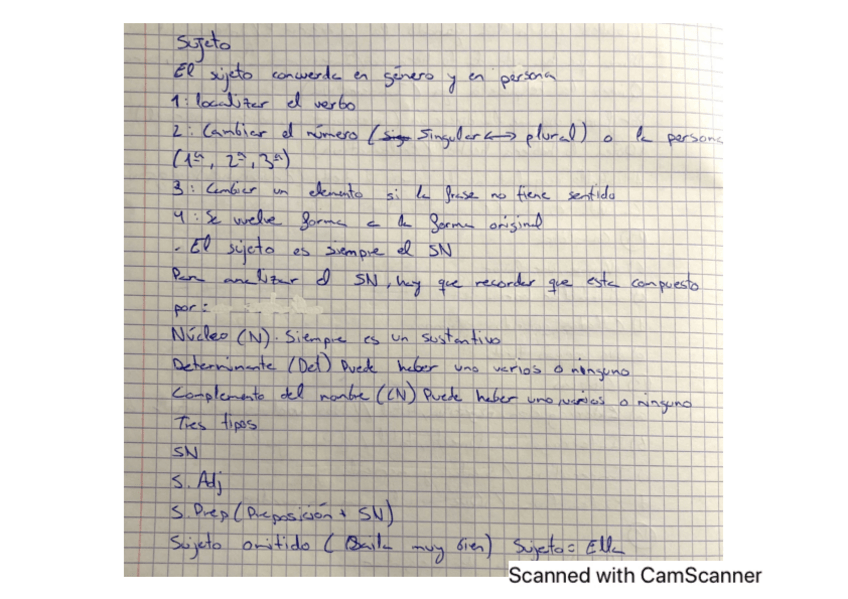 Sujeto
El sujeto concuerda en género y en persona
1: localizar el verbo
2: Cambiar el número (sig Singular <-> plural) o la persona
(1ª, 2ª, 3ª)
3: Cambiar un elemento si la frase no tiene sentido
4: Se vuelve forma a la forma original
- El sujeto es siempre el SN
Para analizar el SN, hay que recordar que esta compuesto
por:
Núcleo (N). Siempre es un sustantivo
Determinante (Det) Puede haber uno varios o ninguno
Complemento del nombre (CN) Puede haber uno, varios o ninguno
Tres tipos
SN
S. Adj
S. Prep (Preposición + SN)
Sujeto omitido (Baila muy bien) Sujeto = Ella
Scanned with CamScanner